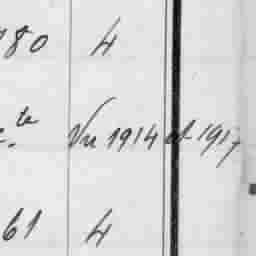 80 4
te Vu 1914 et 1917
61 4